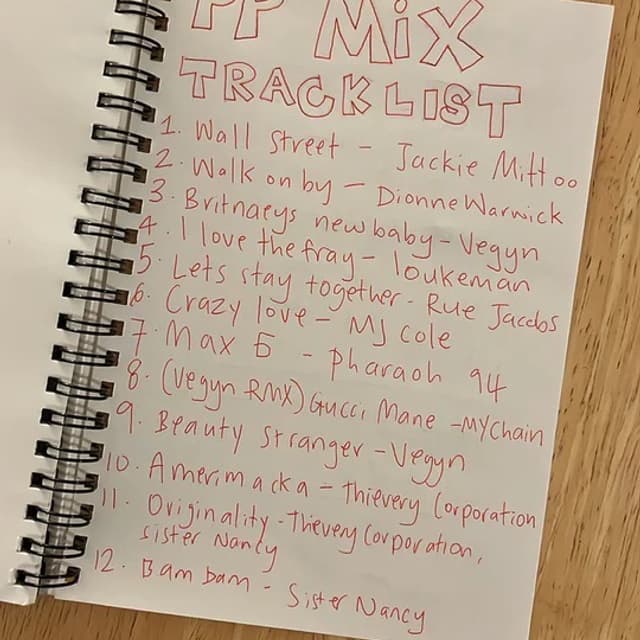 PP MIX
TRACKLIST
1. Wall Street - Jackie Mittoo
2. Walk on by - Dionne Warwick
3. Britnaeys new baby - Vegyn
4. I love the fray - loukeman
5. Lets stay together - Rue Jacobs
6. Crazy love - MJ Cole
7. Max B - Pharaoh 94
8. (Vegyn RMX) Gucci Mane - MY Chain
9. Beauty stranger - Vegyn
10. Amerimacka - Thievery Corporation
11. Originality - Thievery Corporation,
sister Nancy
12. Bam bam - Sister Nancy